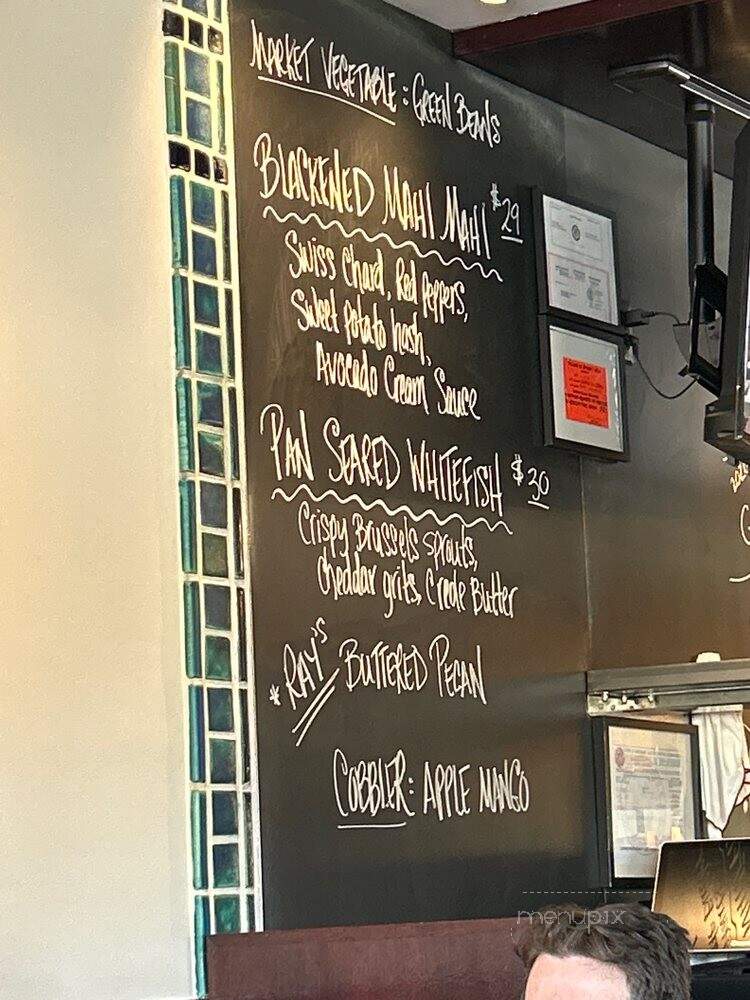 MARKET VEGETABLE: GREEN BEANS
BLACKENED MAHI MAHI $29
Swiss Chard, Red Peppers,
Sweet Potato hash,
Avocado Cream Sauce
PAN SEARED WHITEFISH $30
Crispy Brussels sprouts,
Cheddar grits, Creole Butter
*RAY'S BUTTERED PECAN
COBBLER: APPLE MANGO
menupix